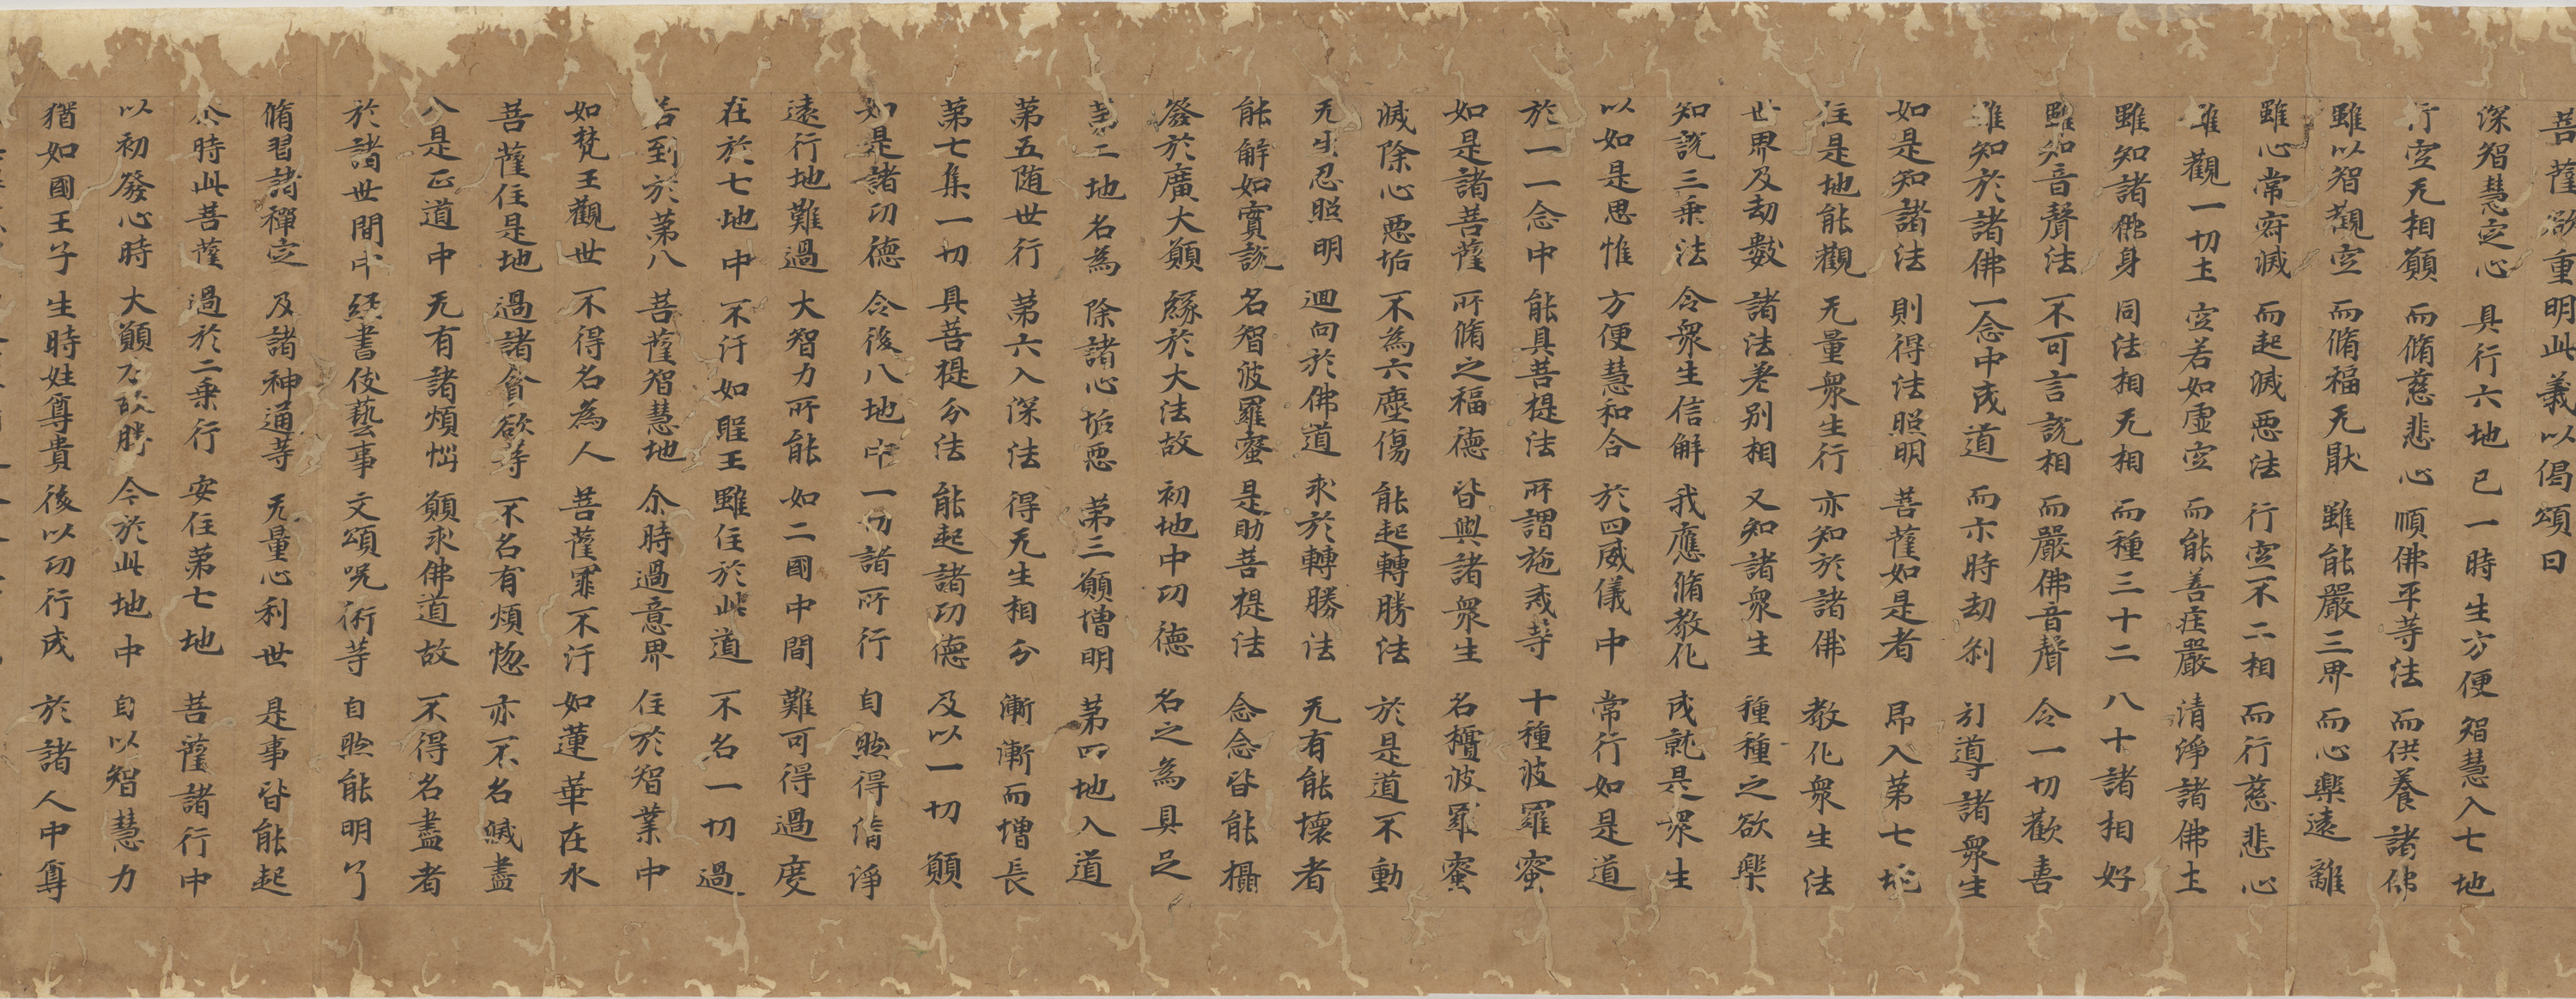 菩薩欲重明此義以偈頌曰
深智慧定心 具行六地已 一時生方便 智慧入七地
行空无相願 而脩慈悲心 順佛平等法 而供養諸佛
雖以智觀空 而脩福无猒 雖能嚴三界 而心樂遠離
雖心常寂滅 而起滅惡法 行空不二相 而行慈悲心
雖觀一切土 空若如虛空 而能善莊嚴 清淨諸佛土
雖知諸佛身 同法相无相 而種三十二 八十諸相好
雖知音聲法 不可言說相 而嚴佛音聲 令一切歡喜
雖知於諸佛 一念中成道 而示時劫剎 引導諸衆生
如是知諸法 則得法照明 菩薩如是者 昂入第七地
住是地能觀 无量衆生行 亦知於諸佛 教化衆生法
世界及劫數 諸法差別相 又知諸衆生 種種之欲樂
知說三乗法 令衆生信解 我應脩教化 成就是衆生
以如是思惟 方便慧和合 於四威儀中 常行如是道
於一一念中 能具菩提法 所謂施戒等 十種波羅蜜
如是諸菩薩 所脩之福德 皆與諸衆生 名檀波羅蜜
滅除心惡垢 不為六塵傷 能起轉勝法 於是道不動
无生忍照明 迴向於佛道 求於轉勝法 无有能壞者
能解如實說 名智波羅蜜 是助菩提法 念念皆能攝
發於廣大願 緣於大法故 初地中功德 名之為具足
第二地名為 除諸心垢惡 第三願增明 第四地入道
第五随世行 第六入深法 得无生相分 漸漸而增長
第七集一切 具菩提分法 能起諸功德 及以一切願
如是諸功德 令後八地中 一切諸所行 自然得清淨
遠行地難過 大智力所能 如二國中間 難可得過度
在於七地中 不汙如聖王 雖住於此道 不名一切過
若到於第八 菩薩智慧地 尒時過意界 住於智業中
如梵王觀世 不得名為人 菩薩罪不汙 如蓮華在水
菩薩住是地 過諸貪欲等 不名有煩惱 亦不名滅盡
八是正道中 无有諸煩惱 願求佛道故 不得名盡者
於諸世間中 經書伎藝事 文頌呪術等 自然能明了
脩習諸禪定 及諸神通等 无量心利世 是事皆能起
尒時此菩薩 過於二乗行 安住第七地 菩薩諸行中
以初發心時 大願力故勝 今於此地中 自以智慧力
猶如國王子 生時姓尊貴 後以功行成 於諸人中尊